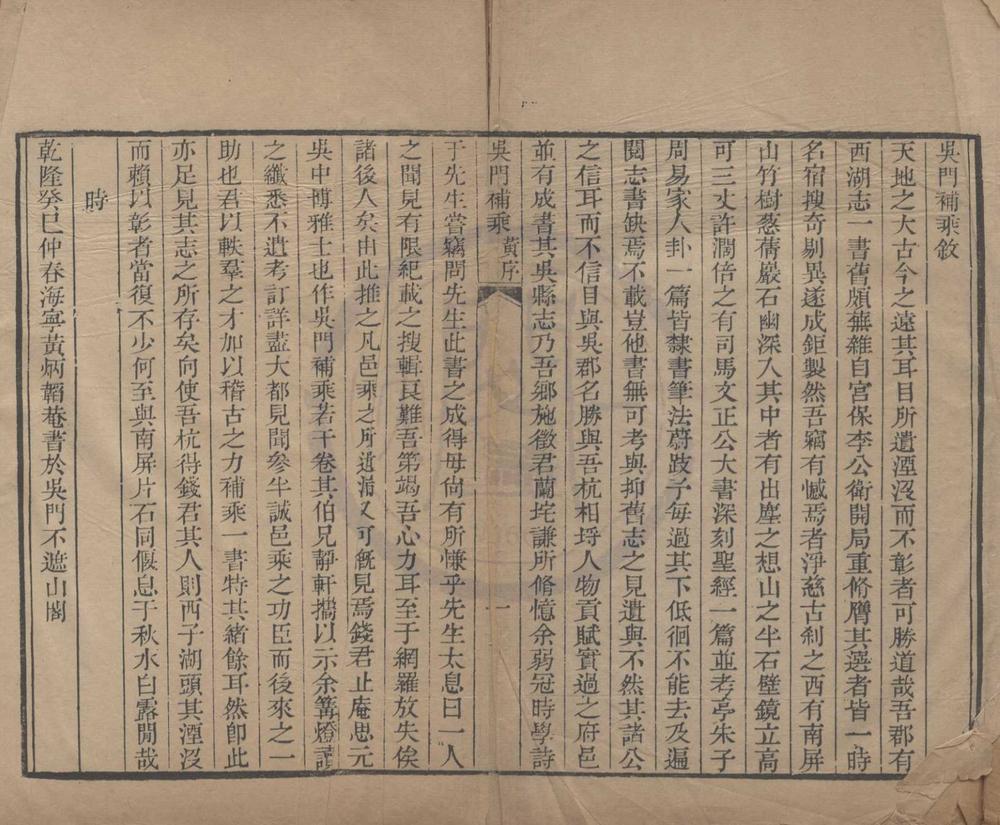 吳門補乘敘
天地之大古今之遠其耳目所遺湮沒而不彰者可勝道哉吾郡有
西湖志一書舊頗蕪雜自宮保李公衛開局重脩膺其選者皆一時
名宿搜奇剔異遂成鉅製然吾竊有憾焉者淨慈古刹之西有南屏
山竹樹葱蒨巖石幽深入其中者有出塵之想山之半石壁鏡立高
可三丈許濶倍之有司馬文正公大書深刻聖經一篇並考亭朱子
周易家人卦一篇皆隸書筆法蔚跂予每過其下低徊不能去及遍
閱志書缺焉不載豈他書無可考與抑舊志之見遺與不然其諸公
之信耳而不信目與吳郡名勝與吾杭相埒人物貢賦實過之府邑
並有成書其吳縣志乃吾鄉施徵君蘭垞謙所脩憶余弱冠時學詩
吳門補乘 黃序 一
于先生嘗竊問先生此書之成得毋尚有所慊乎先生太息曰一人
之聞見有限紀載之搜輯良難吾第竭吾心力耳至于網羅放失俟
諸後人矣由此推之凡邑乘之所遺漏又可旣見焉錢君止庵思元
吳中博雅士也作吳門補乘若干卷其伯兄靜軒擕以示余篝燈讀
之纖悉不遺考訂詳盡大都見聞參半誠邑乘之功臣而後來之一
助也君以軼羣之才加以稽古之力補乘一書特其緒餘耳然卽此
亦足見其志之所存矣向使吾杭得錢君其人則西子湖頭其湮沒
而賴以彰者當復不少何至與南屏片石同偃息于秋水白露閒哉
時
乾隆癸巳仲春海寧黃炳韜菴書於吳門不遮山閣